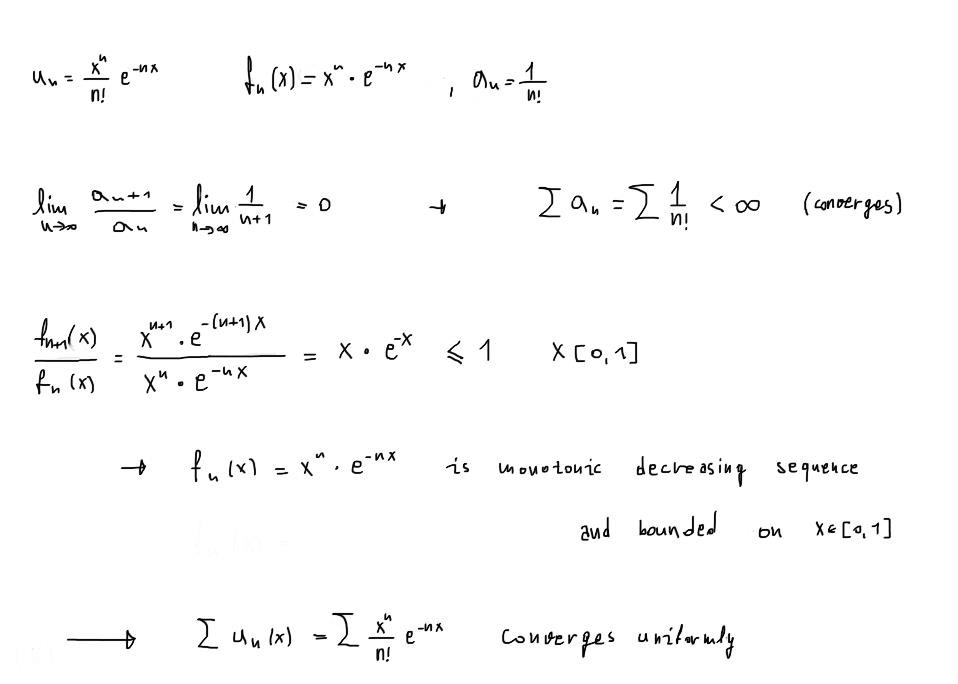 uₙ = xⁿ/n! e^(-nx)   fₙ(x) = xⁿ · e^(-nx) , aₙ = 1/n!
lim n→∞ aₙ₊₁/aₙ = lim n→∞ 1/(n+1) = 0 → ∑ aₙ = ∑ 1/n! < ∞ (converges)
fₙ₊₁(x)/fₙ(x) = (xⁿ⁺¹ · e^(-(n+1)x))/(xⁿ · e^(-nx)) = x · e^(-x) ⩽ 1   x [0,1]
→ fₙ(x) = xⁿ · e^(-nx) is monotonic decreasing sequence
and bounded on x∈[0,1]
⟶ ∑ uₙ(x) = ∑ xⁿ/n! e^(-nx) converges uniformly